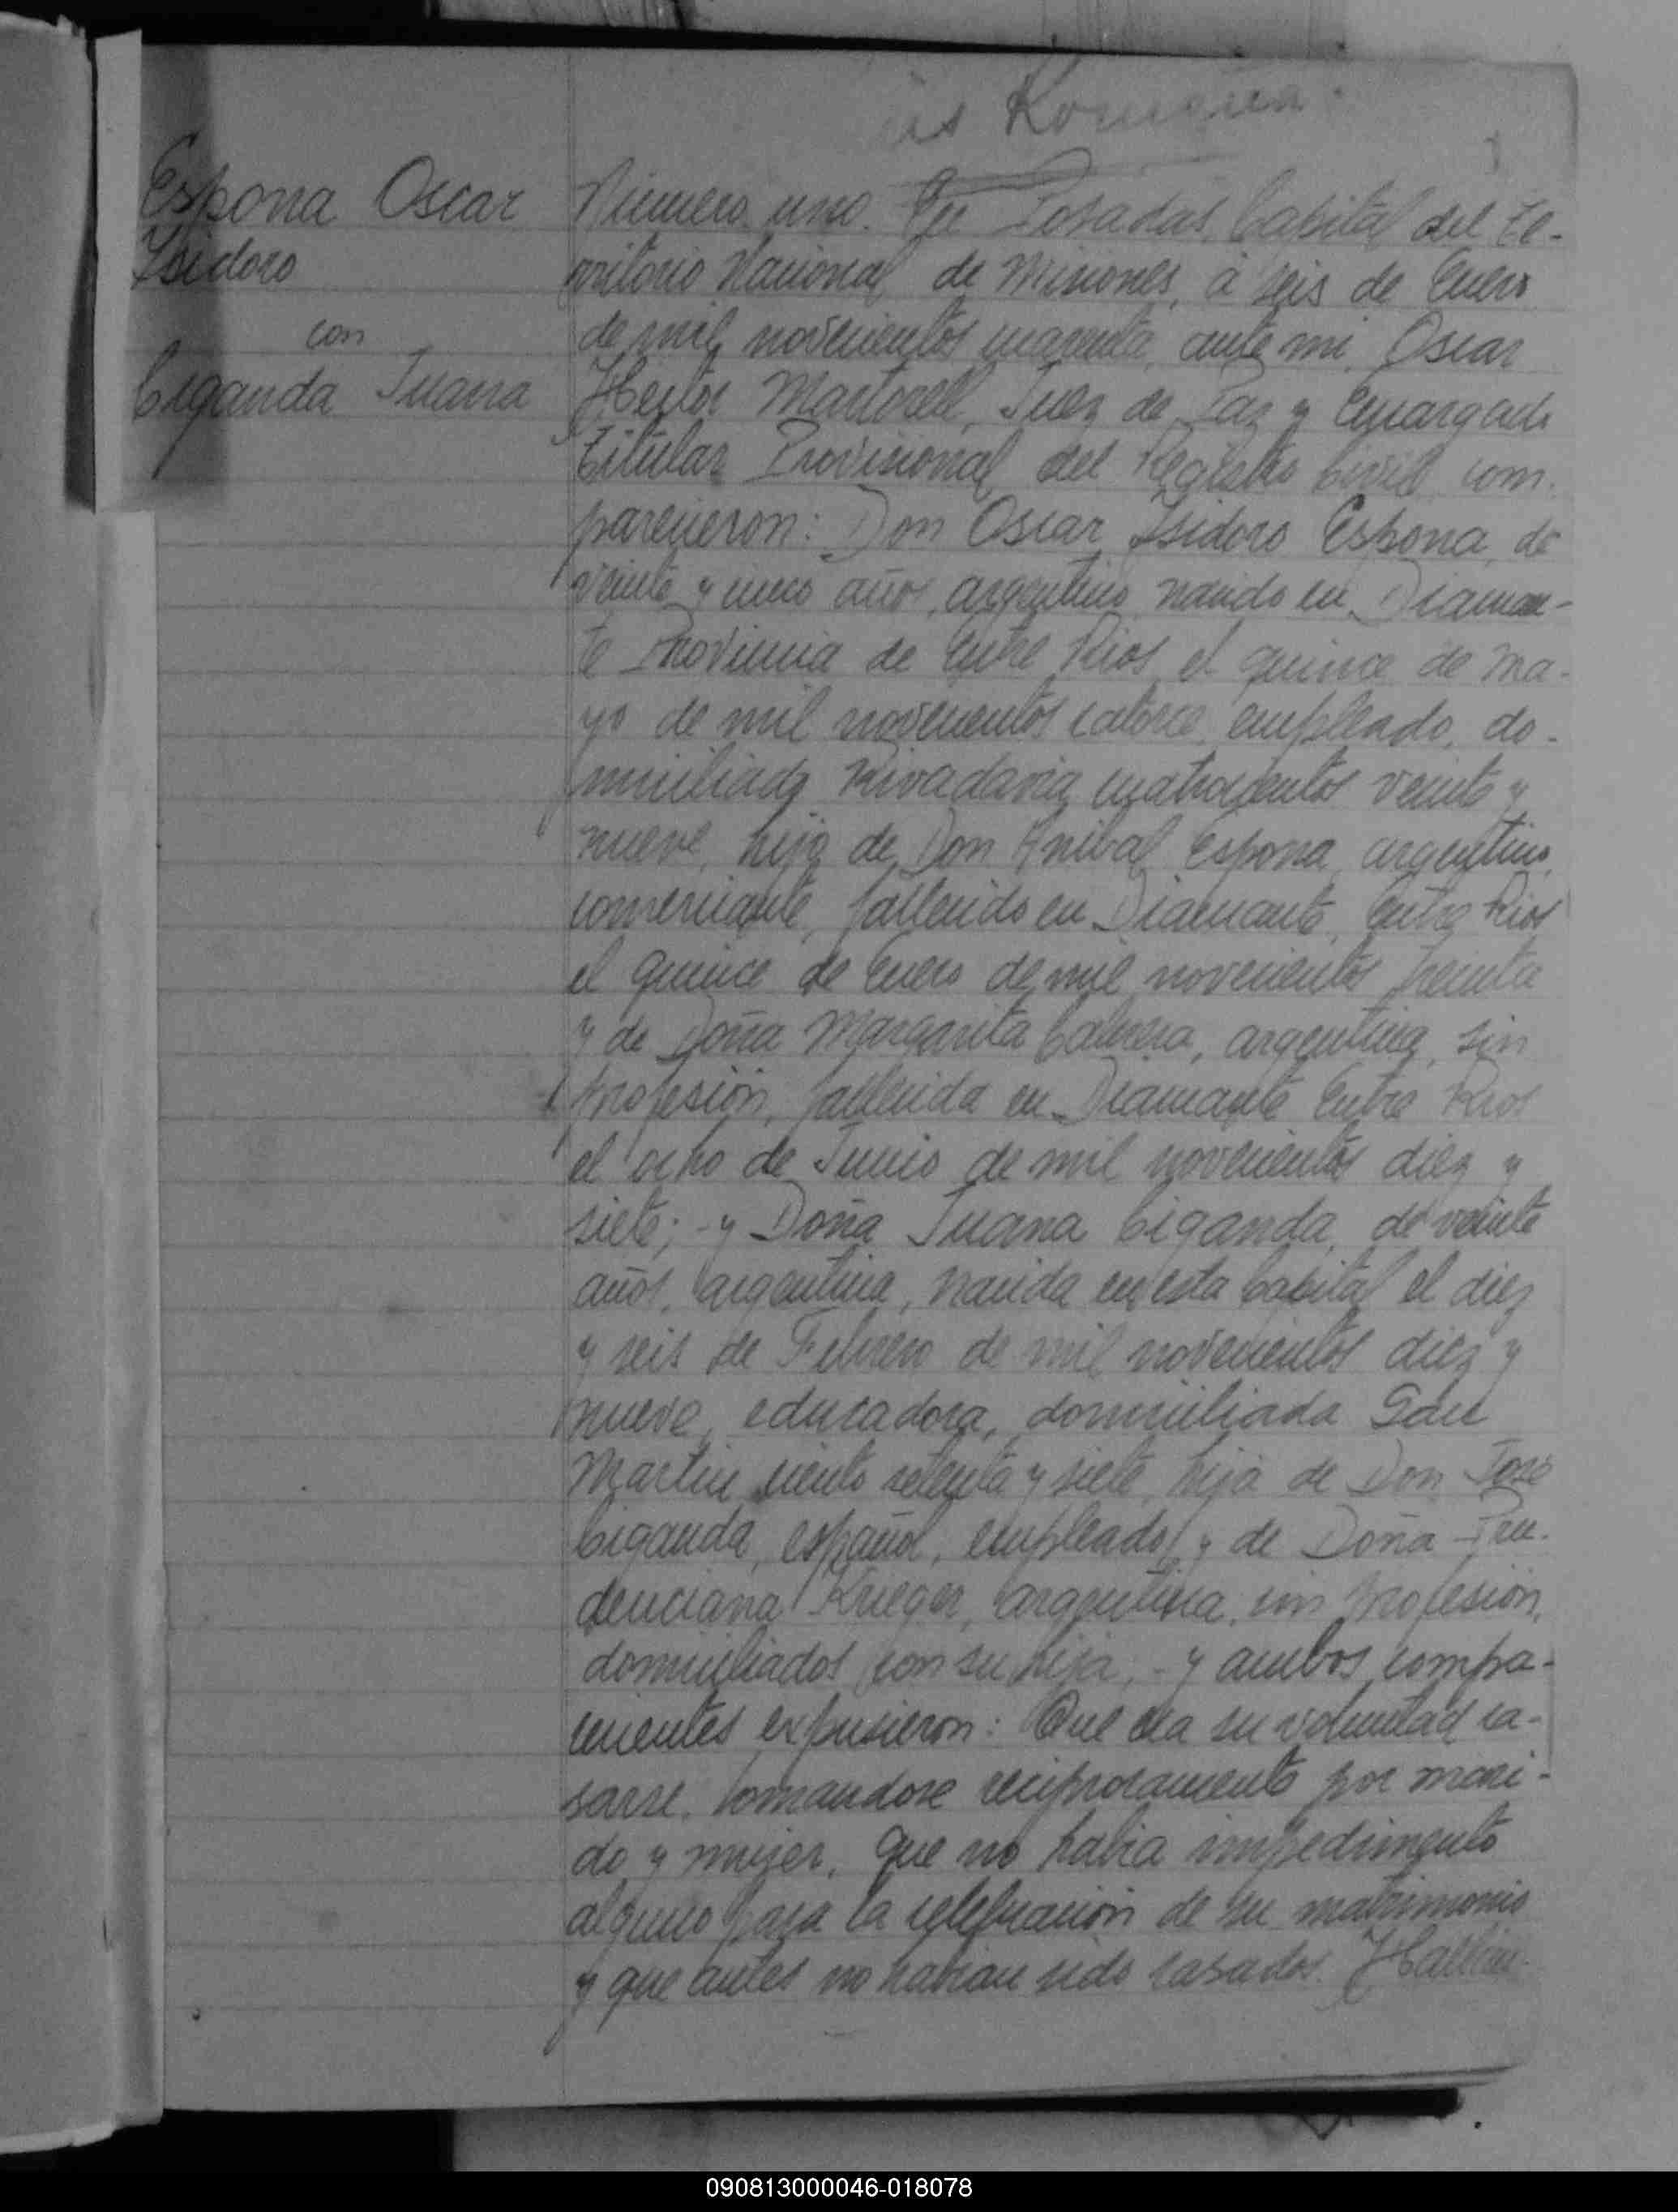 Espona Oscar
Isidoro
con
Ciganda Juana
Número uno. En Posadas, Capital del Te-
rritorio Nacional de Misiones, á seis de Enero
de mil novecientos cuarenta, ante mi, Oscar
Hector Martorell, Juez de Paz y Encargado
Titular Provisional del Registro Civil, com-
parecieron: Don Oscar Isidoro Espona, de
veinte y cinco años, argentino, nacido en Diaman-
te Provincia de Entre Rios, el quince de Ma-
yo de mil novecientos catorce, empleado, do-
miciliado Rivadavia cuatrocientos veinte y
nueve, hijo de Don Anibal Espona, argentino,
comerciante, fallecido en Diamante, Entre Rios
el quince de Enero de mil novecientos treinta
y de Doña Margarita Cabrera, argentina, sin
profesión, fallecida en Diamante Entre Rios
el ocho de Junio de mil novecientos diez y
siete; - y Doña Juana Ciganda, de veinte
años, argentina, nacida en esta Capital el diez
y seis de Febrero de mil novecientos diez y
nueve, educadora, domiciliada San
Martin ciento setenta y siete, hija de Don José
Ciganda, español, empleado, y de Doña Pru-
denciana Krieger, argentina, sin profesión,
domiciliados con su hija, - y ambos compa-
recientes expusieron: Que era su voluntad ca-
sarse, tomandose reciprocamente por mari-
do y mujer, que no habia impedimento
alguno para la celebración de su matrimonio
y que antes no habian sido casados.
090813000046-018078